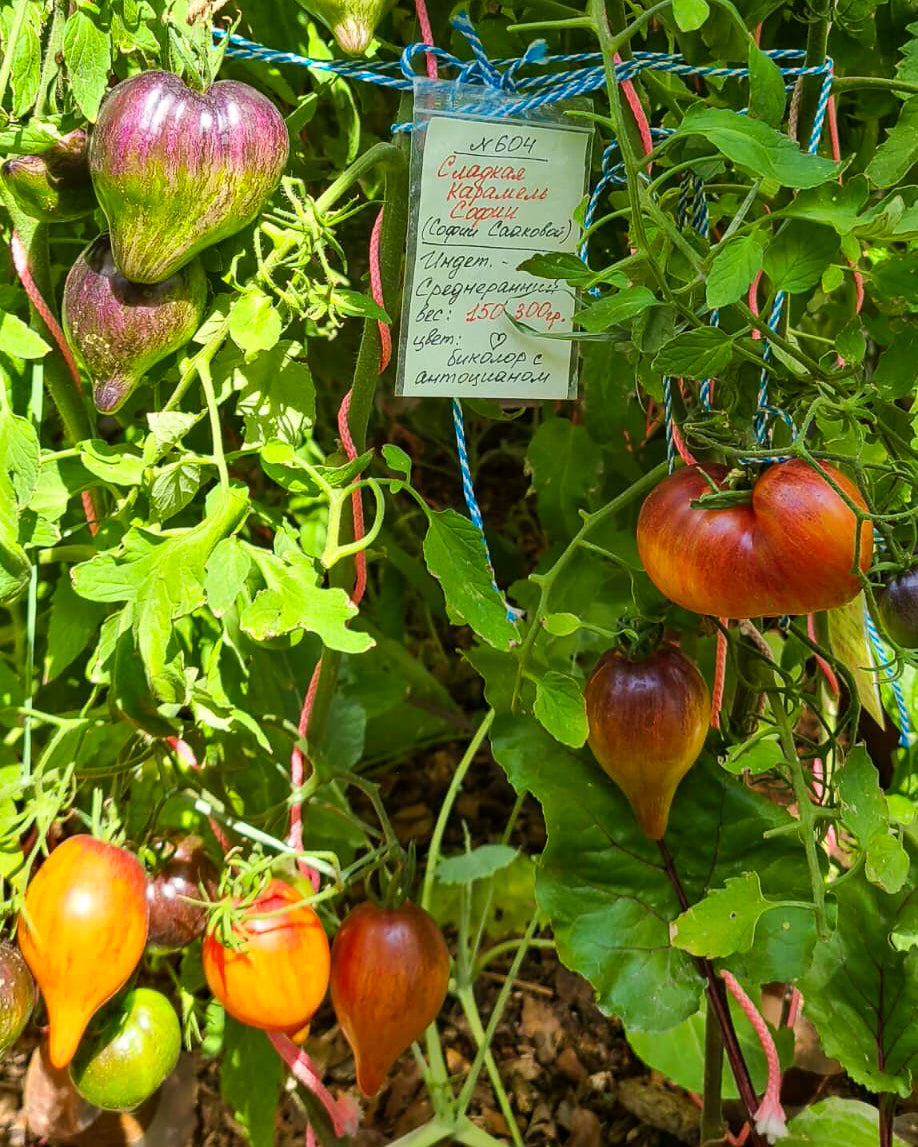 N604
Сладкая
Карамель
Софии
(Софии Сайковой)
Индет. -
Среднеранний
вес: 150-300гр.
цвет: ♡
биколор с
антоцианом